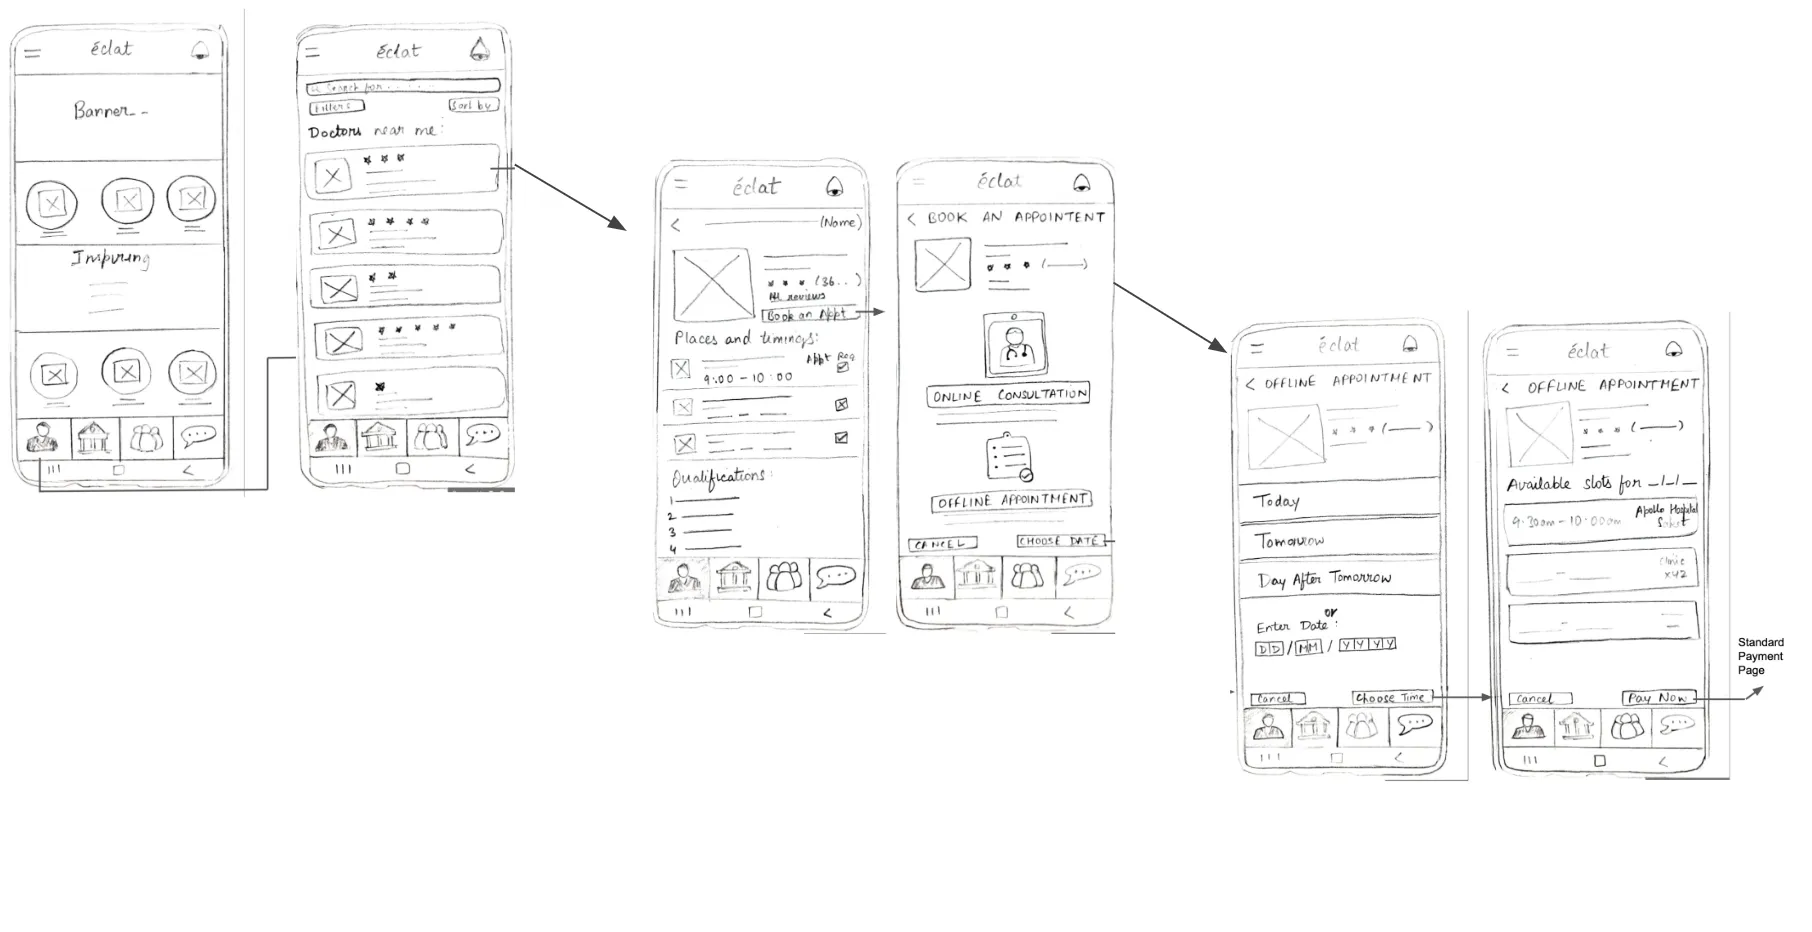 éclat
Banner--
Inspiring
éclat
Search for
Filters
Sort by
Doctors near me:
éclat
(Name)
(36..)
All reviews
Book an Appt
Places and timings:
Appt Req
9:00 - 10:00
Qualifications:
1
2
3
4
éclat
< BOOK AN APPOINTENT
ONLINE CONSULTATION
OFFLINE APPOINTMENT
CANCEL
CHOOSE DATE
éclat
< OFFLINE APPOINTMENT
Today
Tomorrow
Day After Tomorrow
or
Enter Date:
DD/MM/YYYY
Cancel
Choose Time
éclat
< OFFLINE APPOINTMENT
Available slots for _/_/_
9:30am - 10:00am
Apollo Hospital
Clinic
x42
Cancel
Pay Now
Standard
Payment
Page